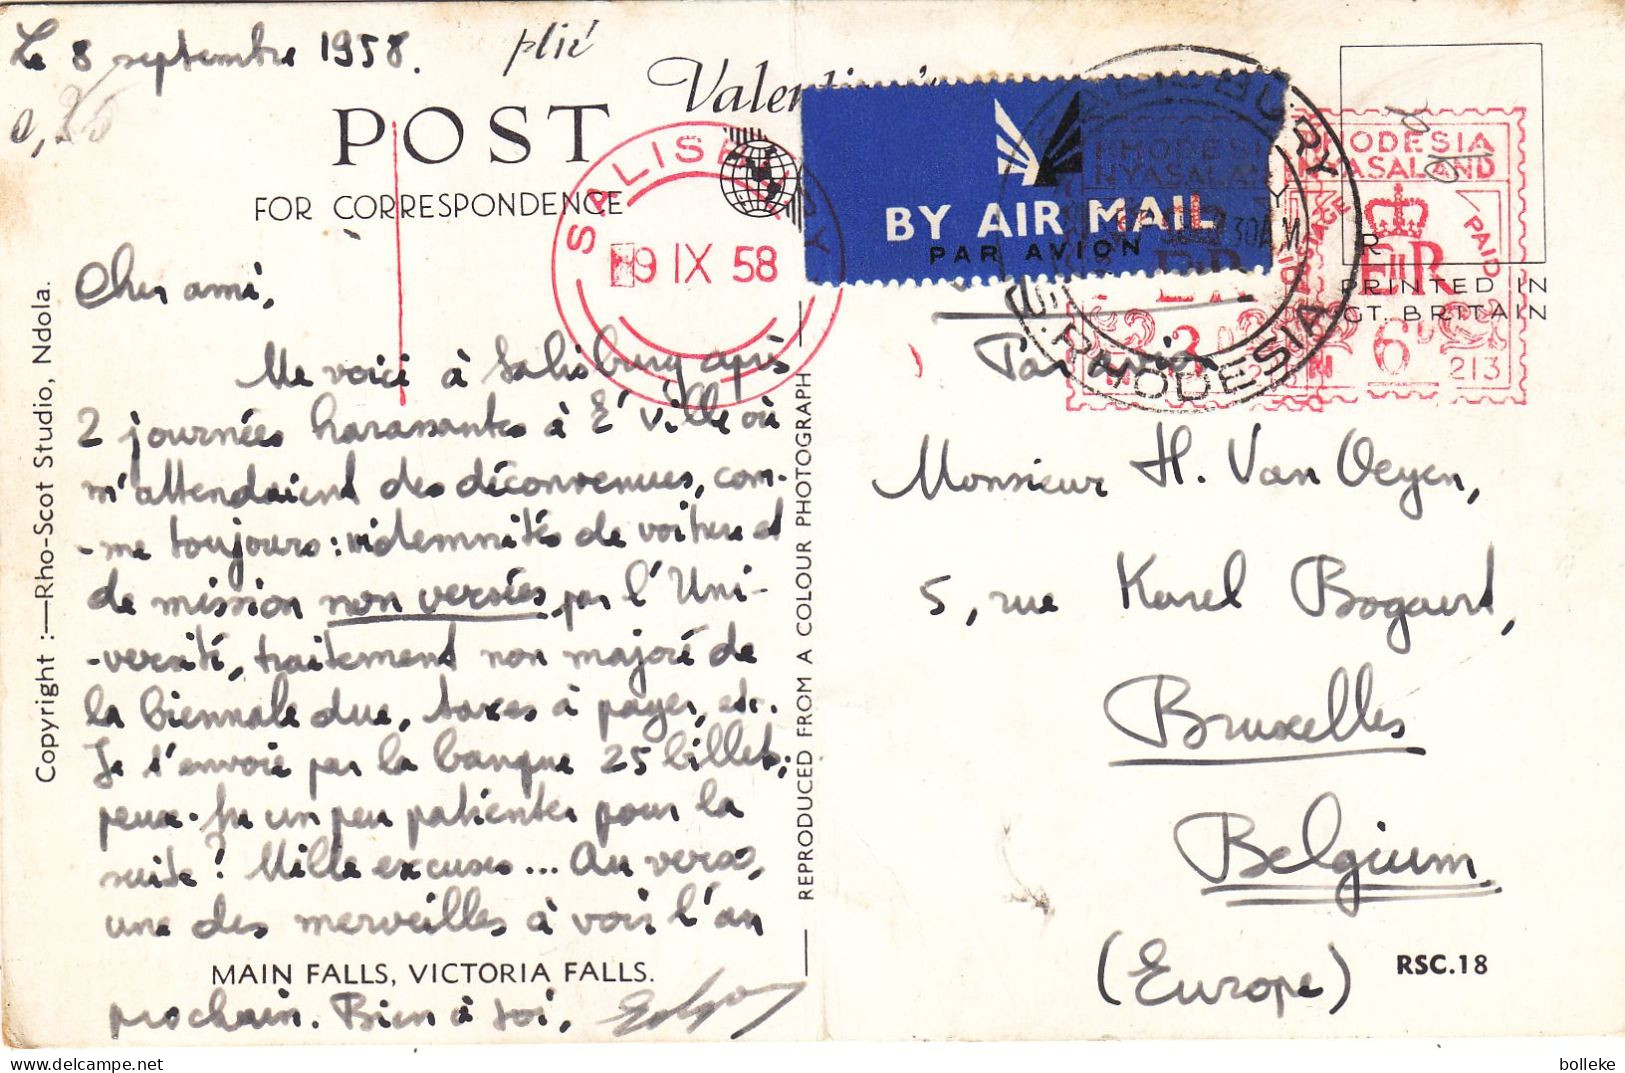 Le 8 septembre 1958.
plié
0,35
Valentine's
POST
FOR CORRESPONDENCE
SALISBURY
9 IX 58
BY AIR MAIL
PAR AVION
SALISBURY
30AM
RHODESIA
RHODESIA
NYASALAND
RHODESIA
NYASALAND
POSTAGE
PAID
EIIR
3
6D
213
PRINTED IN
GT. BRITAIN
Cher ami,
Me voici à Salisbury après
2 journées harassantes à E'Ville où
m'attendaient des déconvenues, com-
-me toujours : indemnités de voiture et
de mission non versées par l'Uni-
-versité, traitement non majoré de
la biennale due, taxes à payer, etc.
Je t'envoie par la banque 25 billets;
peux-tu un peu patienter pour la
suite ? Mille excuses... Au verso,
une des merveilles à voir l'an
MAIN FALLS, VICTORIA FALLS.
prochain. Bien à toi,
Copyright :—Rho-Scot Studio, Ndola.
REPRODUCED FROM A COLOUR PHOTOGRAPH
Par avion
Monsieur H. Van Oeyen,
5, rue Karel Bogaerd,
Bruxelles
Belgium
(Europe)
RSC.18
bolleke